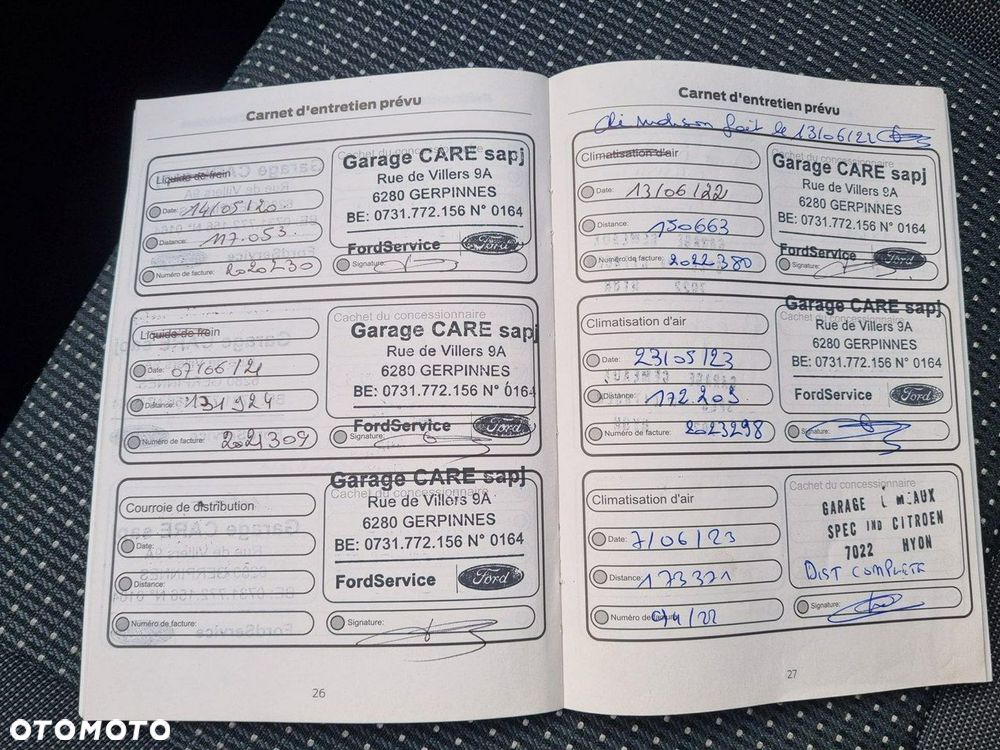 Carnet d'entretien prévu
Liquide de frein
Cachet du concessionnaire
Garage CARE sapj
Rue de Villers 9A
6280 GERPINNES
BE: 0731.772.156 N° 0164
FordService
Ford
Date: 14/05/20
Distance: 117.053
Numéro de facture: 2020230
Signature:
Liquide de frein
Cachet du concessionnaire
Garage CARE sapj
Rue de Villers 9A
6280 GERPINNES
BE: 0731.772.156 N° 0164
FordService
Ford
Date: 07/06/21
Distance: 131924
Numéro de facture: 2021309
Signature:
Courroie de distribution
Cachet du concessionnaire
Garage CARE sapj
Rue de Villers 9A
6280 GERPINNES
BE: 0731.772.156 N° 0164
FordService
Ford
Date:
Distance:
Numéro de facture:
Signature:
26
Carnet d'entretien prévu
fait le 13/06/22
Climatisation d'air
Cachet du concessionnaire
Garage CARE sapj
Rue de Villers 9A
6280 GERPINNES
BE: 0731.772.156 N° 0164
FordService
Ford
Date: 13/06/22
Distance: 150663
Numéro de facture: 2022380
Signature:
Climatisation d'air
Cachet du concessionnaire
Garage CARE sapj
Rue de Villers 9A
6280 GERPINNES
BE: 0731.772.156 N° 0164
FordService
Ford
Date: 23/05/23
Distance: 172.203
Numéro de facture: 2023298
Signature:
Climatisation d'air
Cachet du concessionnaire
GARAGE
SPEC IND CITROEN
7022 HYON
DIST COMPLETE
Date: 7/06/23
Distance: 173371
Numéro de facture:
Signature:
27
OTOMOTO